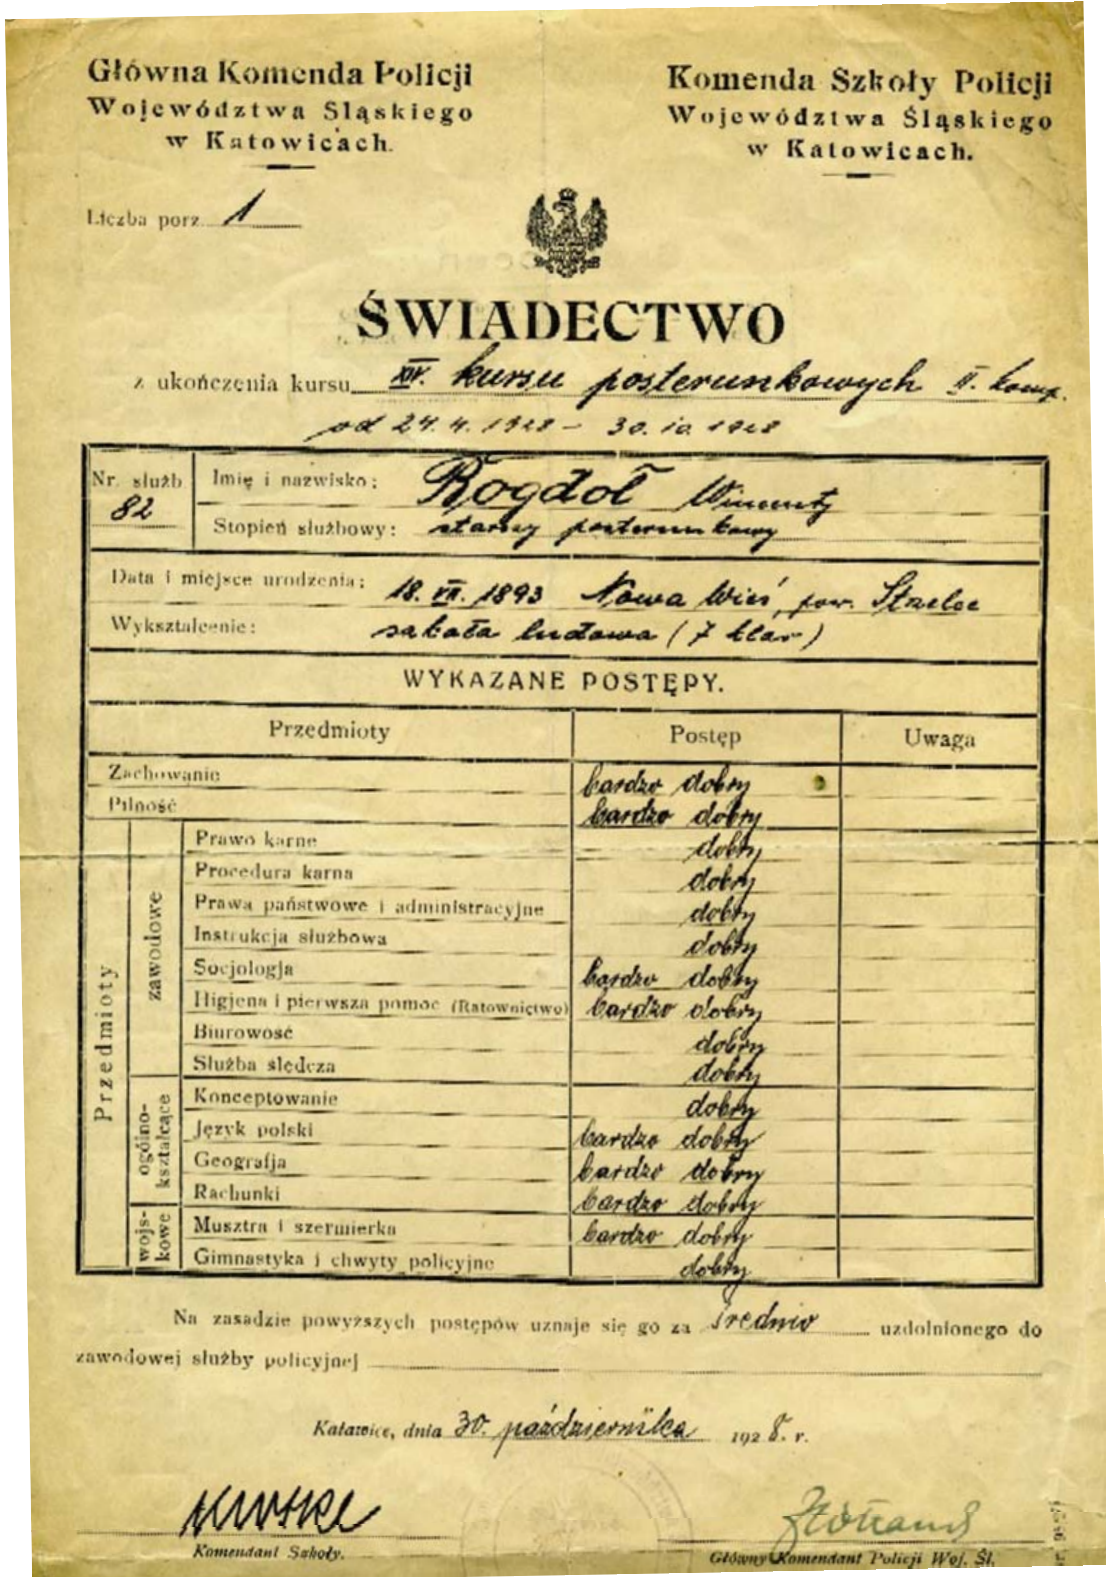 Główna Komenda Policji
Województwa Śląskiego
w Katowicach.
Komenda Szkoły Policji
Województwa Śląskiego
w Katowicach.
Liczba porz. 1
ŚWIADECTWO
z ukończenia kursu XIV. kursu posterunkowych II. komp.
od 24. 4. 1928 - 30. 10. 1928
Nr. służb 82
Imię i nazwisko: Rogdoł Wincenty
Stopień służbowy: starszy posterunkowy
Data i miejsce urodzenia: 18. VII. 1893 Nowa Wieś, pow. Strzelce
Wykształcenie: szkoła ludowa (7 klas)
WYKAZANE POSTĘPY.
Przedmioty Postęp Uwaga
Zachowanie bardzo dobry
Pilność bardzo dobry
Przedmioty
zawodowe
Prawo karne dobry
Procedura karna dobry
Prawa państwowe i administracyjne dobry
Instrukcja służbowa dobry
Socjologja bardzo dobry
Higjena i pierwsza pomoc (Ratownictwo) bardzo dobry
Biurowość dobry
Służba śledcza dobry
ogólno-
kształcące
Konceptowanie dobry
Język polski bardzo dobry
Geografja bardzo dobry
Rachunki bardzo dobry
wojs-
kowe
Musztra i szermierka bardzo dobry
Gimnastyka i chwyty policyjne dobry
Na zasadzie powyższych postępów uznaje się go za średnio uzdolnionego do
zawodowej służby policyjnej
Katowice, dnia 30. października 1928. r.
Komendant Szkoły.
Główny Komendant Policji Woj. Śl.